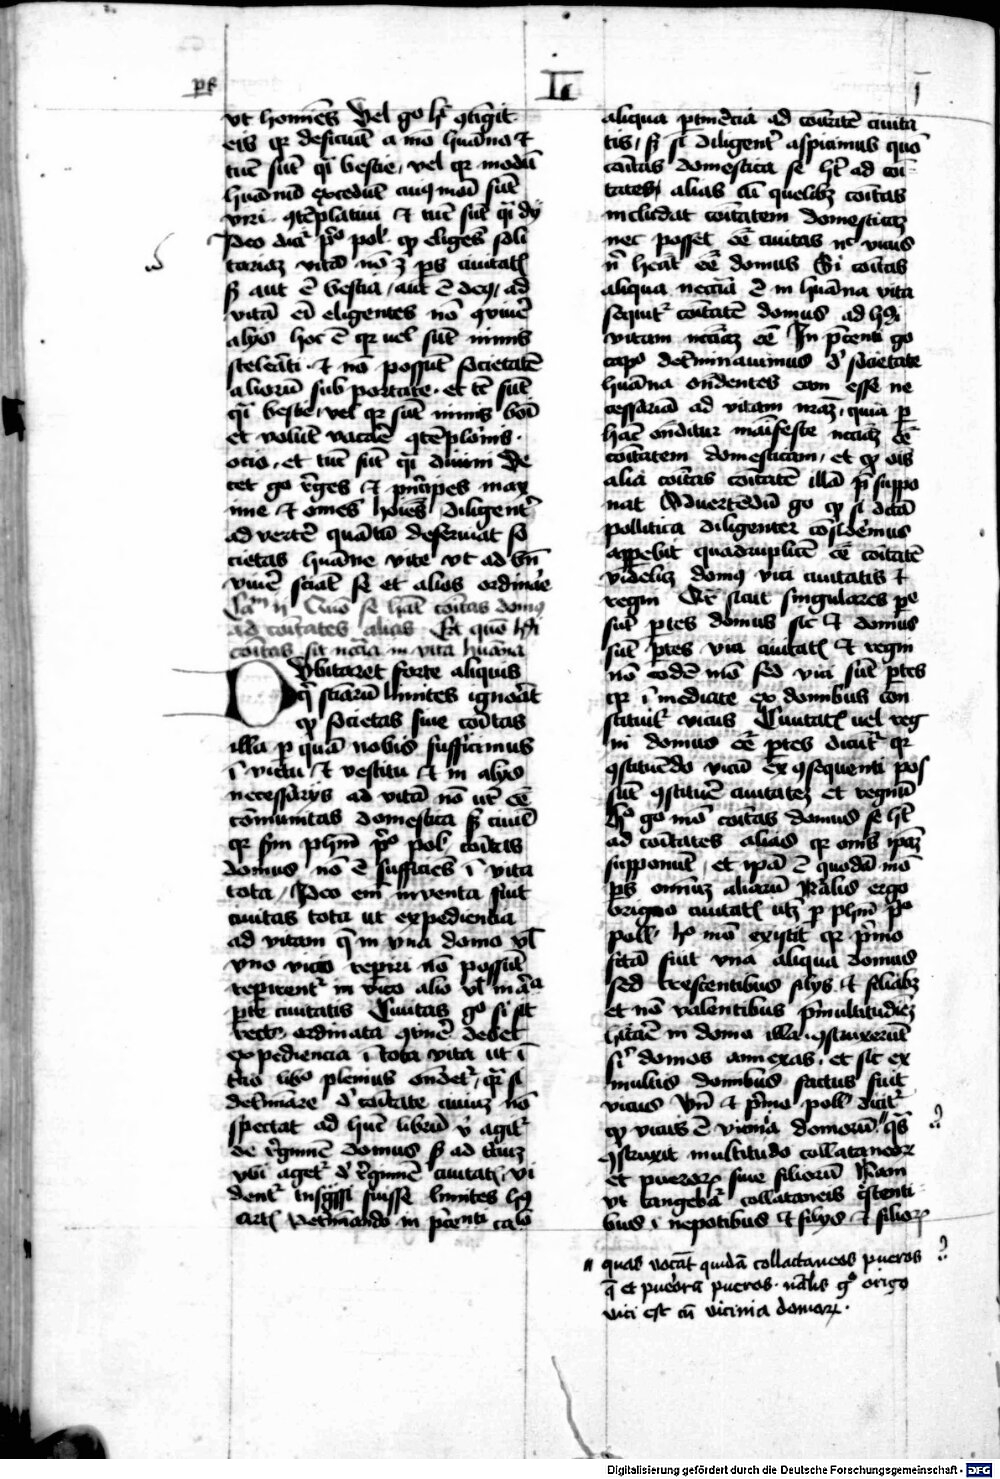 ps
L
I
ut homines Vel go hoc contigit
eis qr deficiunt a modo humano et
tunc sunt quasi bestie, vel qr modum
humanum excedunt cuiusmodi sunt
viri contemplativi et tunc sunt quasi dij
Ideo dicitur primo pol. quod eligens soli
tariam vitam non est pars civitatis
sed aut est bestia, aut est deus, ad
vitam enim eligentes non convivere
alijs hoc est qr vel sunt nimis
scelerati. et non possunt societatem
aliorum sub portare. et tunc sunt
quasi bestie, vel qr sunt nimis boni
et volunt vacare contemplationis
ocio, et tunc sunt quasi divini De
cet go reges et principes maxi
me et omnes homines diligenter
advertere quantum deserviat so
cietas humane vite ut ad bene
vivere sciant se et alios ordinare
Cam II Quomodo se habet communitas domus
ad communitates alias Et quomodo huiusmodi
communitas sit necessaria in vita humana
Dubitaret forte aliquis
qui scientiarum limites ignorat
quod societas sive communitas
illa per quam nobis sufficimus
in victu et vestitu et in alijs
necessarijs ad vitam non videtur esse
communitas domestica sed civilis
qr secundum philosophum primo pol. communitas
domus non est sufficiens in vita
tota, Ideo enim inventa fuit
civitas tota ut expedientia
ad vitam que in una domo vel
uno vico reperiri non possunt
reperirentur in vico alio vel in alia
parte civitatis Civitas go si sit
recte ordinata continere debet
expediencia in tota vita ut in
tertio libro plenius ondetur, quare si
determinare de communitate civium non
spectat ad hunc librum ubi agitur
de regimine domus sed ad tertium
ubi agetur de regimine civitatis, vi
dentur transgressi fuisse limites huius
artis Determinando in presenti capitulo
aliqua pertinencia ad communitatem civita
tis, sed si diligenter aspicimus quomodo
communitas domestica se habet ad communi
tates alias cum quelibet communitas
includat communitatem domesticam
nec posset esse civitas nec vicus
nisi haberet esse domus Si communitas
aliqua necessaria est in humana vita
sequitur communitatem domus ad huiusmodi
vitam necessariam esse In presenti go
capitulo determinavimus de societate
humana ondentes eam esse ne
cessariam ad vitam nostram, quia per
hanc onditur manifeste necessariam esse
communitatem domesticam, et quod omnis
alia communitas communitatem illam presuppo
nat Advertendum go quod si dicta
pollitica diligenter considerimus
apparebit quadruplicem esse communitatem
videlicet domus vici civitatis et
regni Nam sicut singulares per
sone partes domus sic et domus
sunt partes vici civitatis et regni
non eodem modo sed vici sunt partes
qr immediate ex domibus con
stituitur vicus Civitatis vel reg
ni domus esse partes dicuntur qr
constituendo vicum ex consequenti pos
sunt constituere civitatem et regnum
Hoc go modo communitas domus se habet
ad communitates alias qr omnes ipsam
supponunt, et ipsa est quodam modo
pars omnium aliarum Naturalis ergo
origo civitatis ut per philosophum primo
poll. hoc modo existit qr primo
facta fuit una aliqua domus
sed crescentibus filijs et filiabus
et non valentibus pre multitudine
habitare in domo illa. construxerunt
sibi domos annexas. et sic ex
multis domibus factus fuit
vicus Unde et primo poll. dicitur
quod vicus est vicinia domorum quas
construxit multitudo collataneorum
et puerorum sive filiorum Nam
ut tangebatur collataneis crescenti
bus in nepotibus et filijs et filiorum
quas vocant quidam collactaneos pueros
que et puerorum pueros. naturalis go origo
vici est cum vicinia domorum.
Digitalisierung gefördert durch die Deutsche Forschungsgemeinschaft - DFG